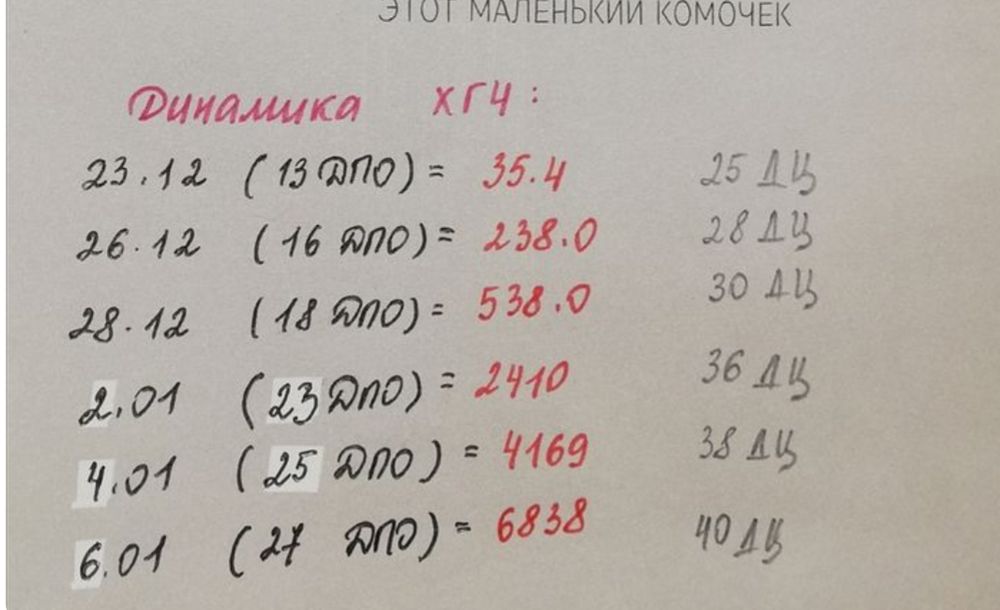 ЭТОТ МАЛЕНЬКИЙ КОМОЧЕК
Динамика ХГЧ:
23.12 (13 ДПО) = 35.4 25 ДЦ
26.12 (16 ДПО) = 238.0 28 ДЦ
28.12 (18 ДПО) = 538.0 30 ДЦ
2.01 (23 ДПО) = 2410 36 ДЦ
4.01 (25 ДПО) = 4169 38 ДЦ
6.01 (27 ДПО) = 6838 40 ДЦ